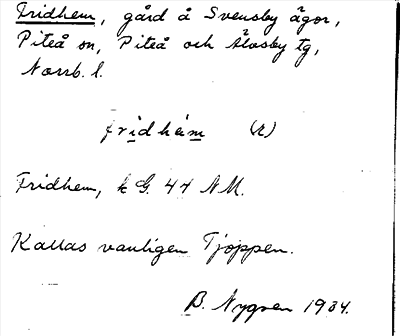 Fridhem, gård å Svensby ägor,
Piteå sn, Piteå och Älvsby tg,
Norrb. l.
fridhém (R)
Fridhem, k G. 44 NM.
Kallas vanligen Tjoppen.
B. Nygren 1934.